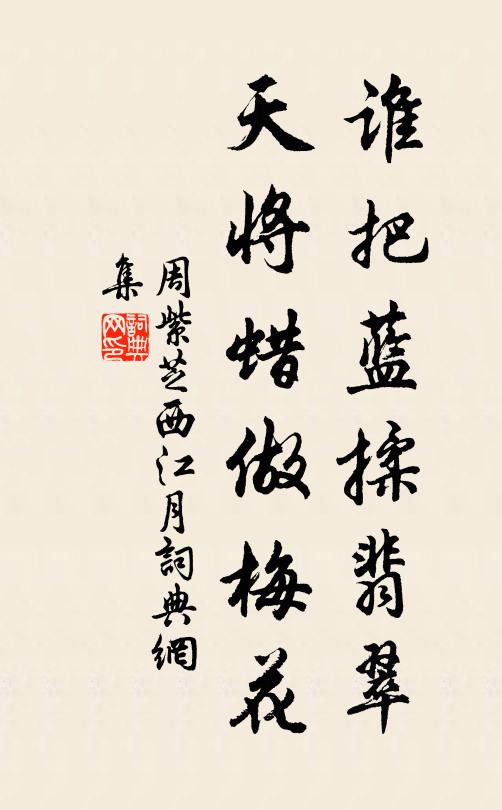 谁把蓝揉翡翠
天将蜡做梅花
周紫芝西江月詞典網
集
詞典网印